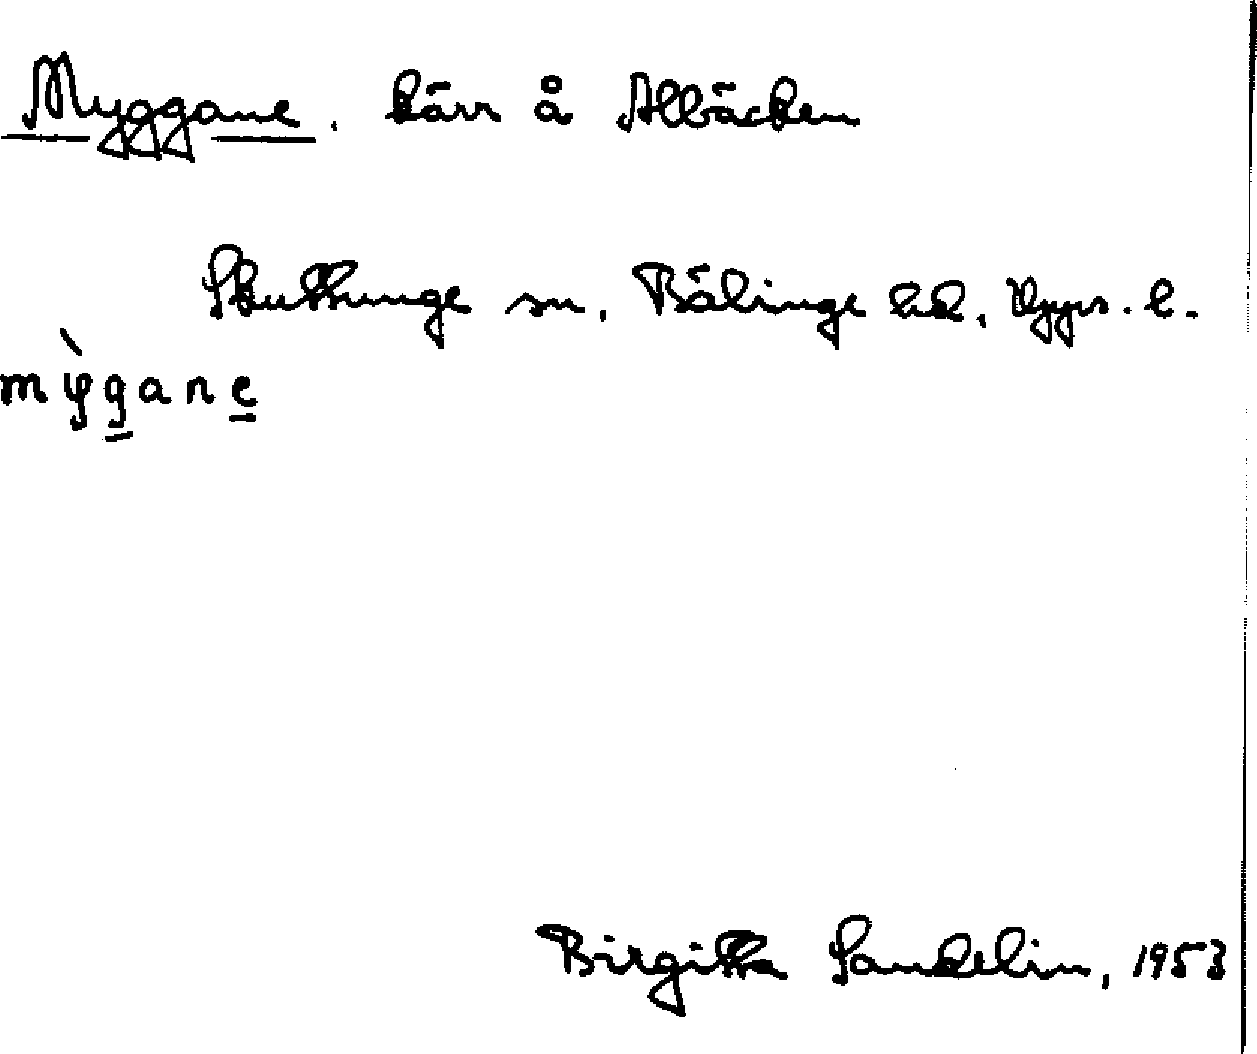 Myggane. kärr å Allbäcken
Skuttunge sn. Bälinge hd. Upps. l.
mỳg̲ane̲
Birgitta Sandelin, 1953